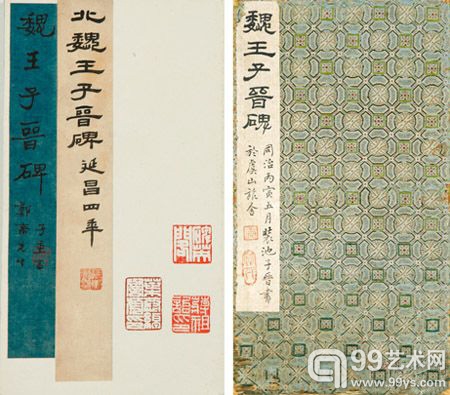 魏王子晉碑
北魏王子晉碑 延昌四年
魏王子晉碑
同治丙寅五月裝池子晉書
於虞山旅舍
99艺术网
www.99ys.com